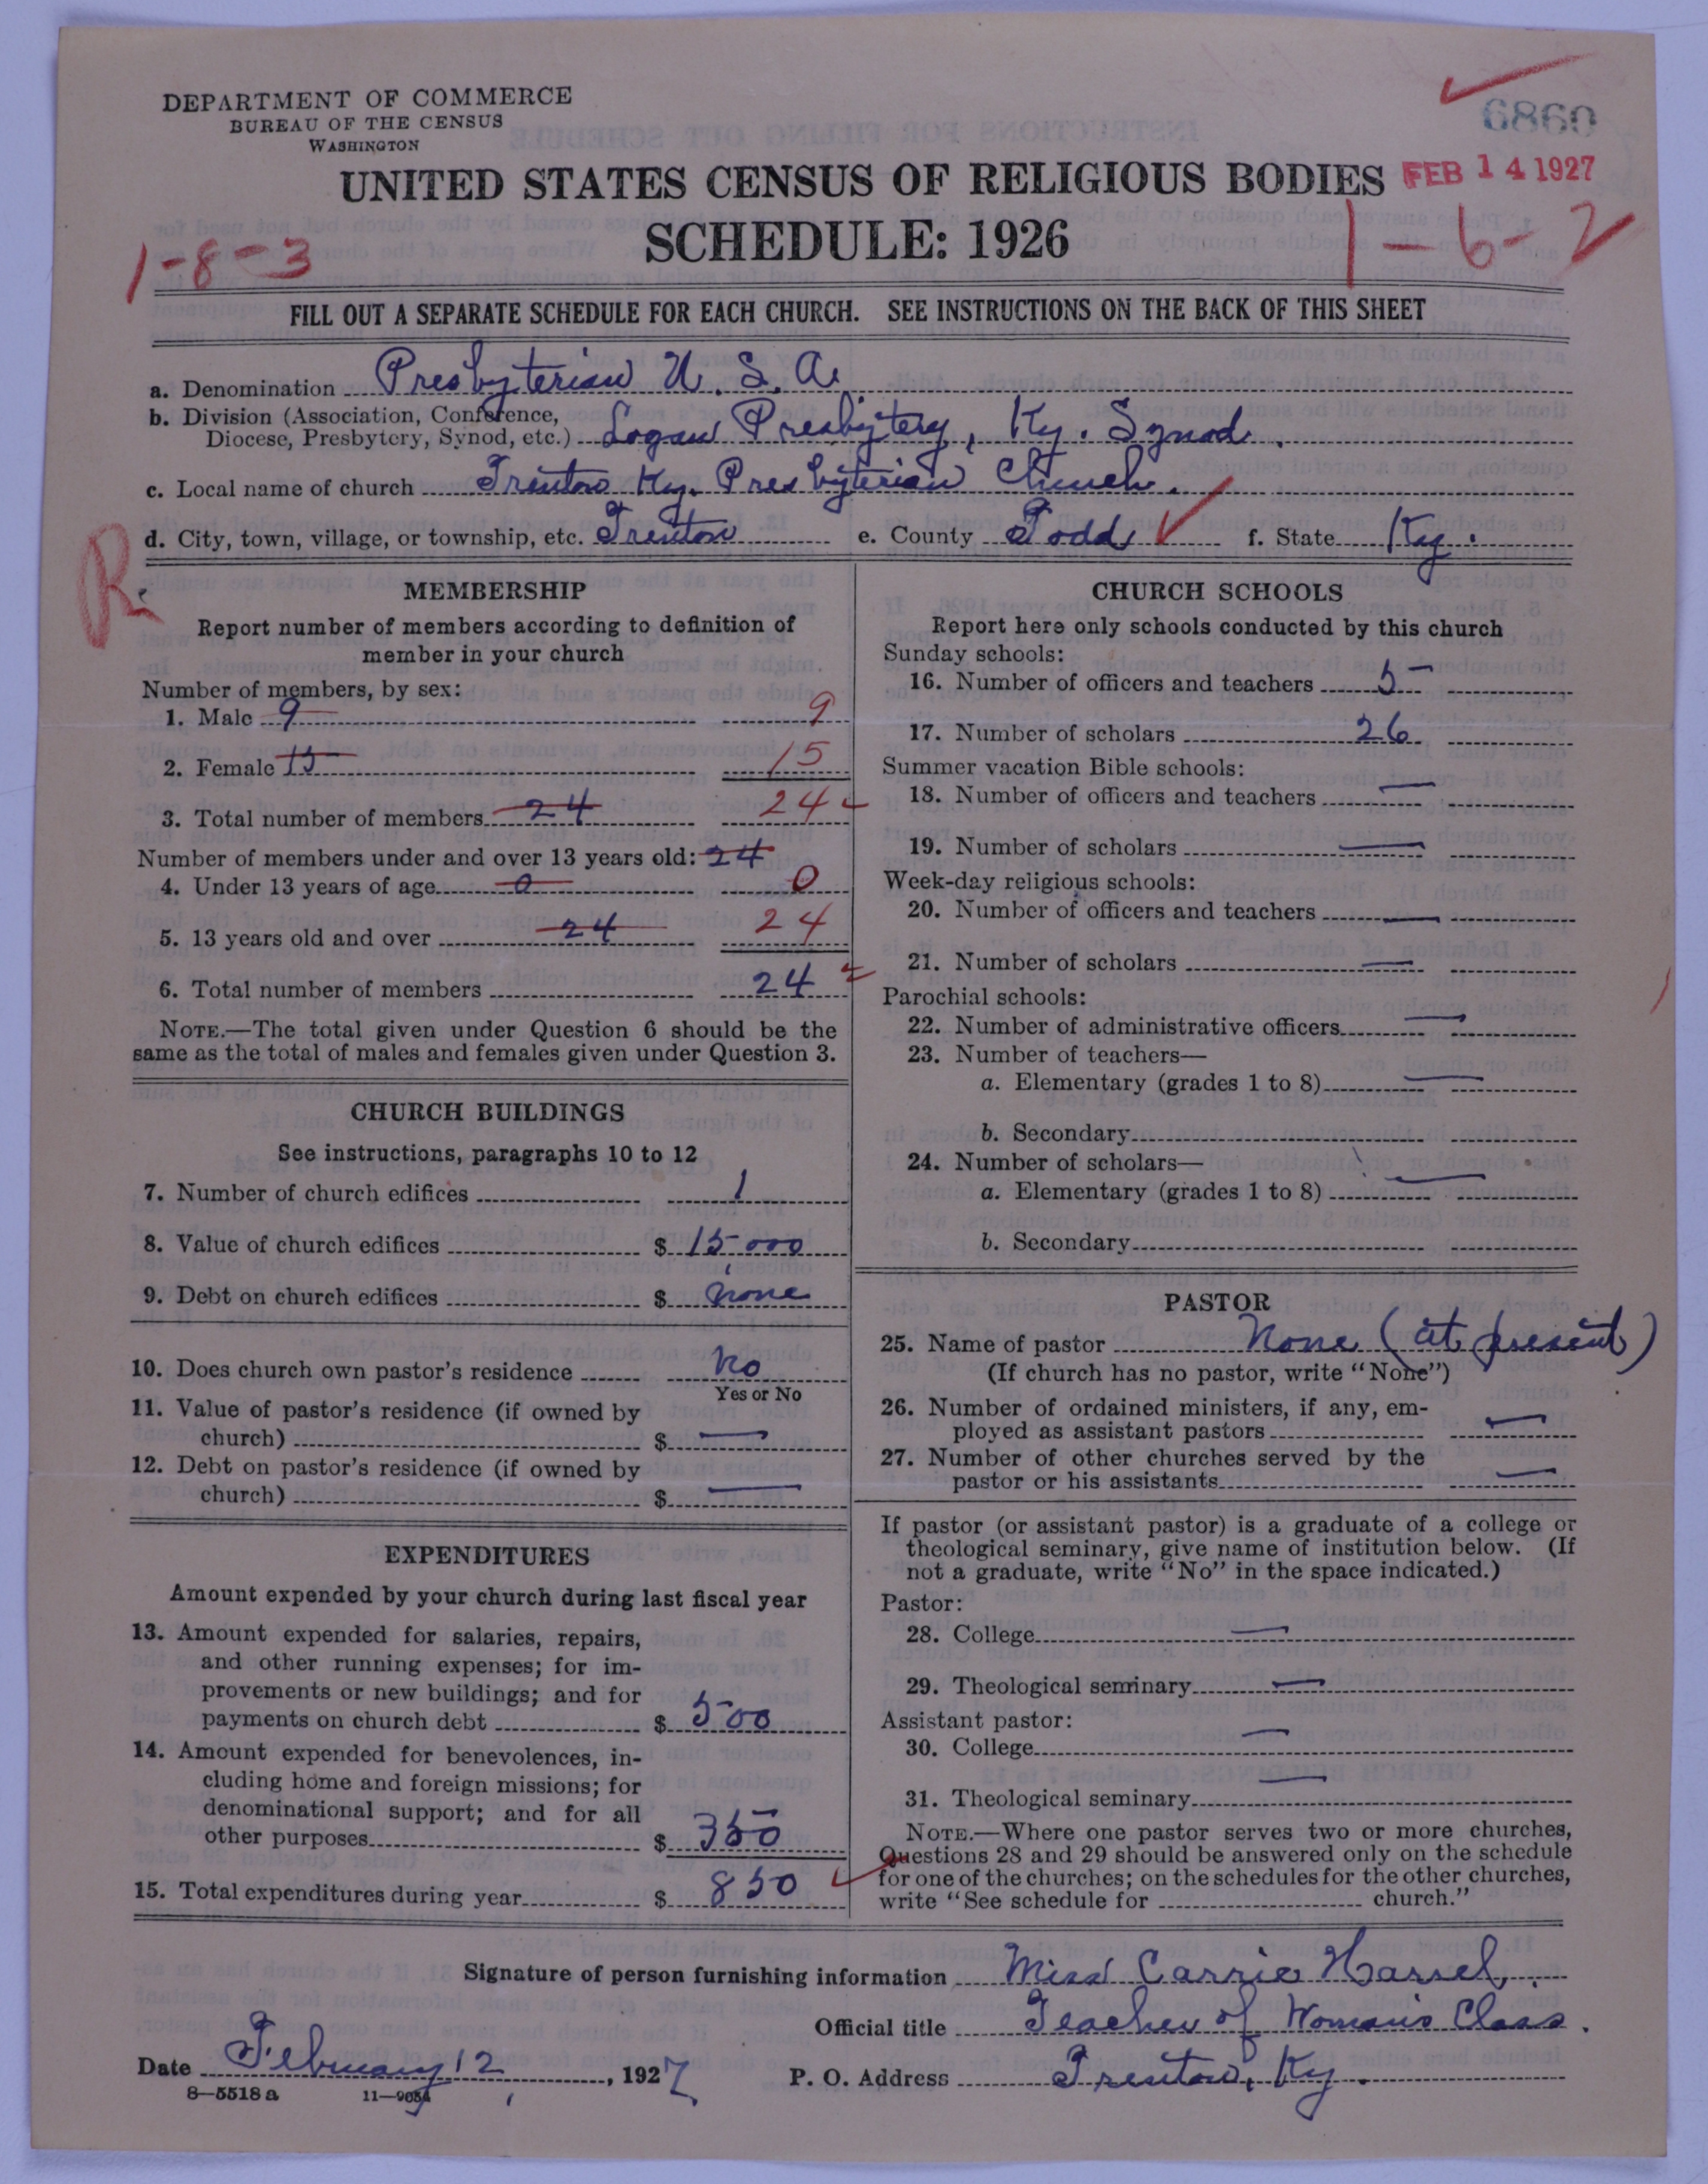 DEPARTMENT OF COMMERCE
BUREAU OF THE CENSUS
WASHINGTON
6860
UNITED STATES CENSUS OF RELIGIOUS BODIES
FEB 14 1927
SCHEDULE: 1926
1-8-3
1-6-2
FILL OUT A SEPARATE SCHEDULE FOR EACH CHURCH. SEE INSTRUCTIONS ON THE BACK OF THIS SHEET
a. Denomination Presbyterian U. S. A.
b. Division (Association, Conference,
Diocese, Presbytery, Synod, etc.) Logan Presbytery, Ky. Synod.
c. Local name of church Trenton Ky. Presbyterian Church.
d. City, town, village, or township, etc. Trenton e. County Todd f. State Ky.
R
MEMBERSHIP
Report number of members according to definition of
member in your church
Number of members, by sex:
1. Male 9 9
2. Female 15 15
3. Total number of members 24 24
Number of members under and over 13 years old: 24
4. Under 13 years of age 0 0
5. 13 years old and over 24 24
6. Total number of members 24
NOTE.—The total given under Question 6 should be the
same as the total of males and females given under Question 3.
CHURCH BUILDINGS
See instructions, paragraphs 10 to 12
7. Number of church edifices 1
8. Value of church edifices $ 15,000
9. Debt on church edifices $ none
10. Does church own pastor's residence No
Yes or No
11. Value of pastor's residence (if owned by
church) $ —
12. Debt on pastor's residence (if owned by
church) $ —
EXPENDITURES
Amount expended by your church during last fiscal year
13. Amount expended for salaries, repairs,
and other running expenses; for im-
provements or new buildings; and for
payments on church debt $ 500
14. Amount expended for benevolences, in-
cluding home and foreign missions; for
denominational support; and for all
other purposes $ 350
15. Total expenditures during year $ 850
CHURCH SCHOOLS
Report here only schools conducted by this church
Sunday schools:
16. Number of officers and teachers 5
17. Number of scholars 26
Summer vacation Bible schools:
18. Number of officers and teachers —
19. Number of scholars —
Week-day religious schools:
20. Number of officers and teachers —
21. Number of scholars —
Parochial schools:
22. Number of administrative officers —
23. Number of teachers—
a. Elementary (grades 1 to 8) —
b. Secondary
24. Number of scholars—
a. Elementary (grades 1 to 8) —
b. Secondary
PASTOR
25. Name of pastor None (at present)
(If church has no pastor, write "None")
26. Number of ordained ministers, if any, em-
ployed as assistant pastors —
27. Number of other churches served by the
pastor or his assistants —
If pastor (or assistant pastor) is a graduate of a college or
theological seminary, give name of institution below. (If
not a graduate, write "No" in the space indicated.)
Pastor:
28. College —
29. Theological seminary —
Assistant pastor:
30. College —
31. Theological seminary —
NOTE.—Where one pastor serves two or more churches,
Questions 28 and 29 should be answered only on the schedule
for one of the churches; on the schedules for the other churches,
write "See schedule for church."
Signature of person furnishing information Miss Carrie Harrel,
Official title Teacher of Woman's Class.
Date February 12, 1927 P. O. Address Trenton, Ky.
8—5518 a 11—9054